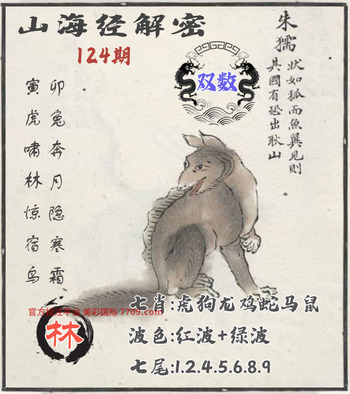 山海经解密
124期
双数
朱獳
狀如狐而魚翼見則
其國有恐出耿山
寅虎啸林惊宿鸟
卯兔奔月隐寒霜
林
七肖:虎狗龙鸡蛇马鼠
波色:红波+绿波
七尾:1.2.4.5.6.8.9